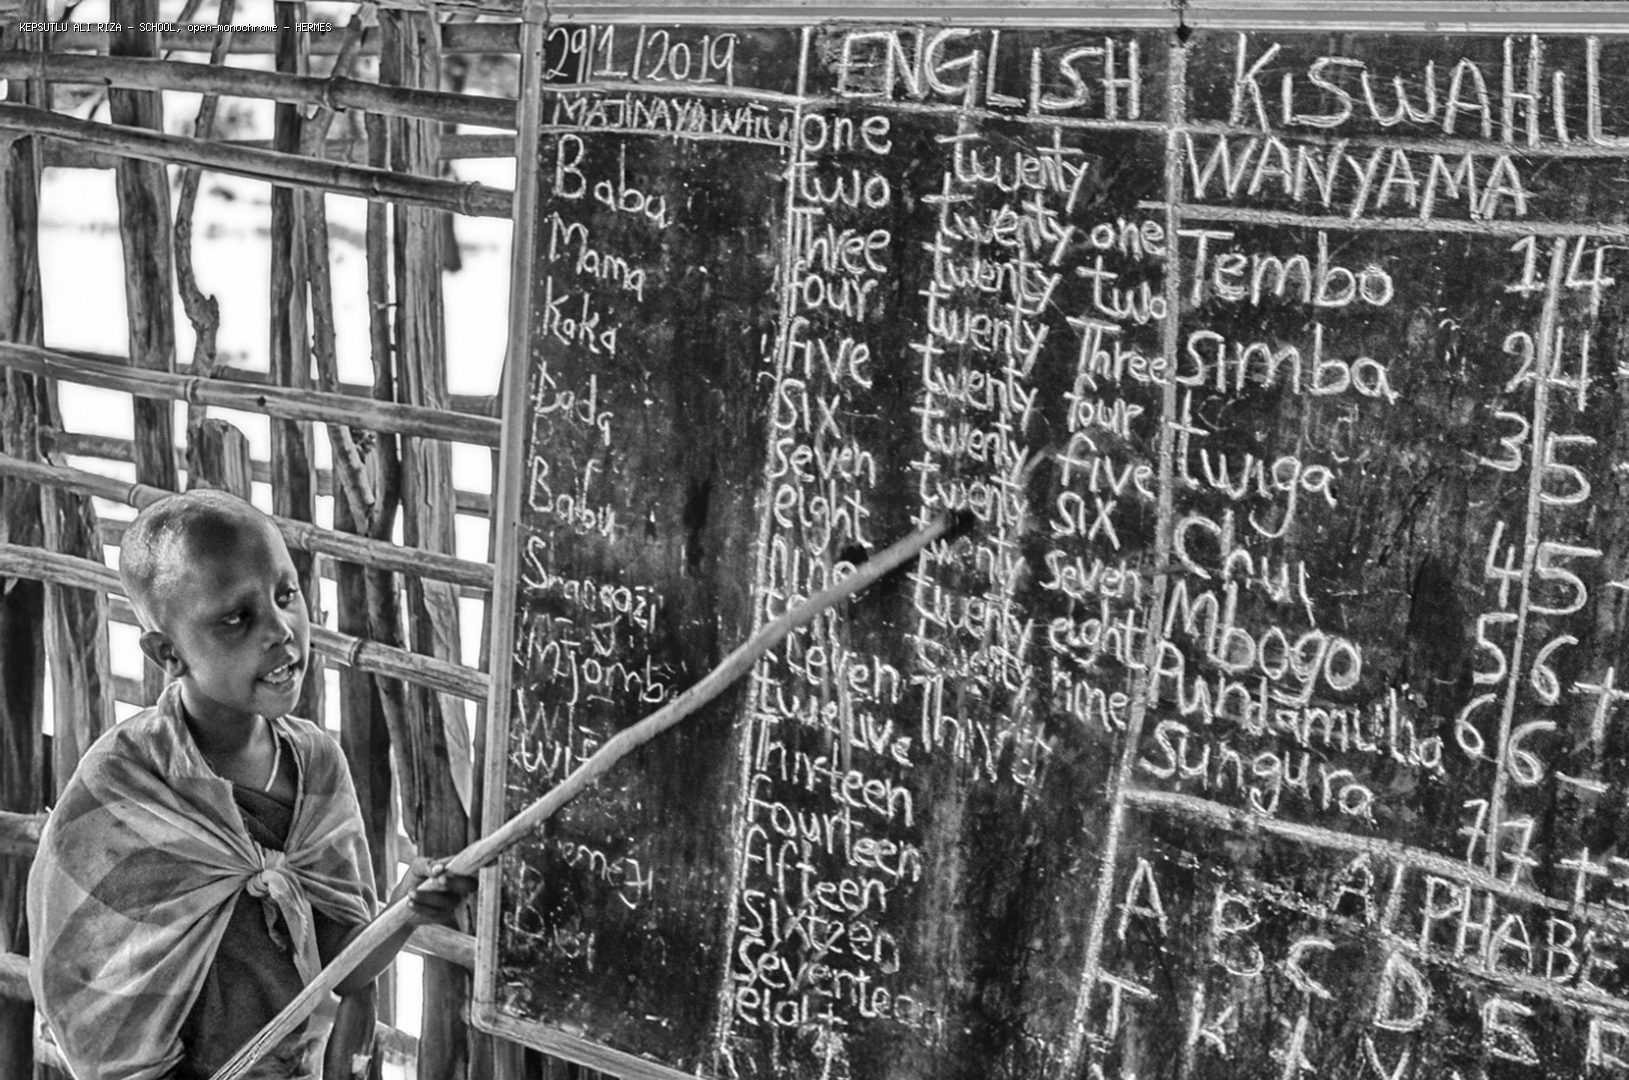 KEPSUTLU ALI RIZA - SCHOOL, open-monochrome - HERMES
29/1/2019
MAJINAYAWATU
Baba
Mama
Kaka
Dada
Babu
Mjomb
ENGLISH
one
two
Three
four
five
six
seven
eight
nine
eleven
tweluve
Thirteen
fourteen
fifteen
sixteen
seventeen
twenty
twenty one
twenty two
twenty Three
twenty four
twenty five
twenty six
twenty seven
twenty eight
twenty nine
KISWAHIL
WANYAMA
Tembo
Simba
twiga
Chui
Mbogo
Pundamilia
Sungura
1 4
2 4
3 5
4 5
5 6
6 6
7 7
ALPHABE
A B C D